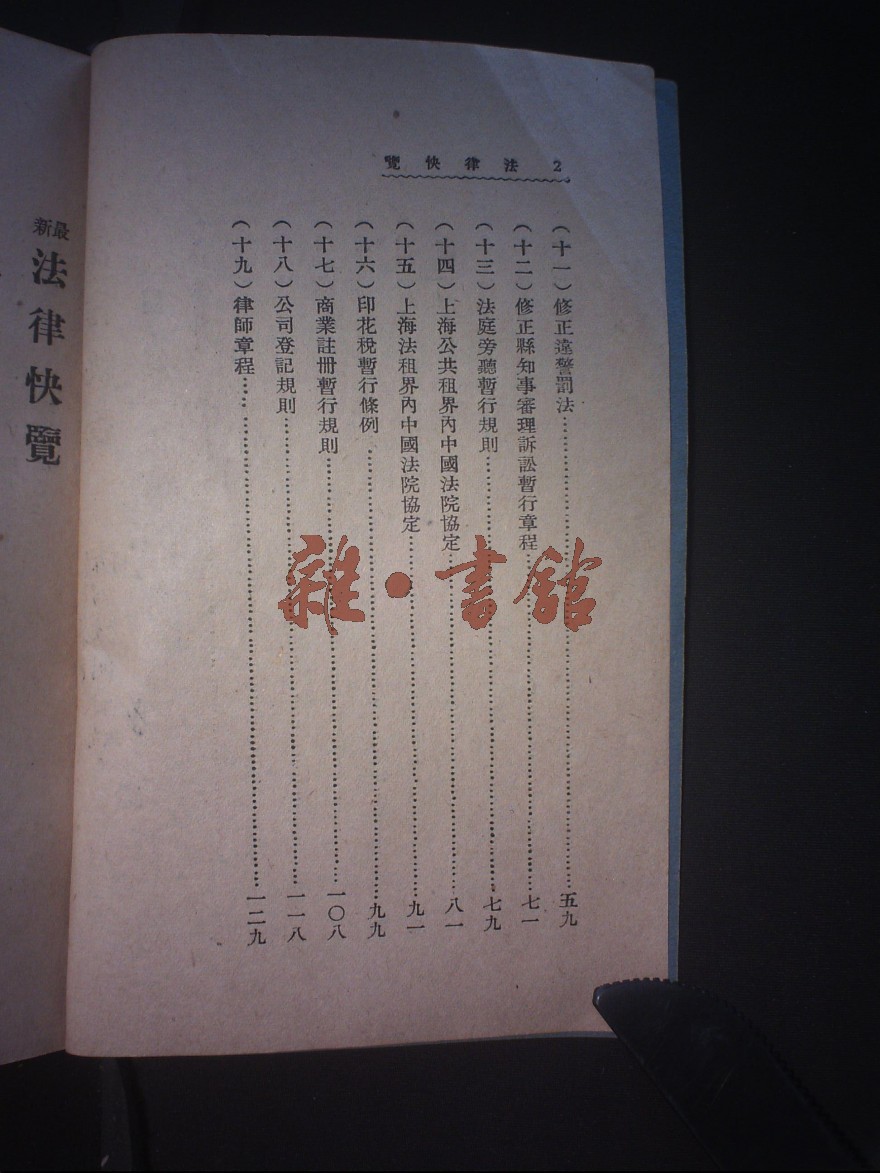 2 法律快覽
(十一)修正違警罰法……………………五九
(十二)修正縣知事審理訴訟暫行章程……………………七一
(十三)法庭旁聽暫行規則……………………七九
(十四)上海公共租界內中國法院協定……………………八一
(十五)上海法租界內中國法院協定……………………九一
(十六)印花稅暫行條例……………………九九
(十七)商業註冊暫行規則……………………一〇八
(十八)公司登記規則……………………一一八
(十九)律師章程……………………一二九
最新
法律快覽
雜·書館